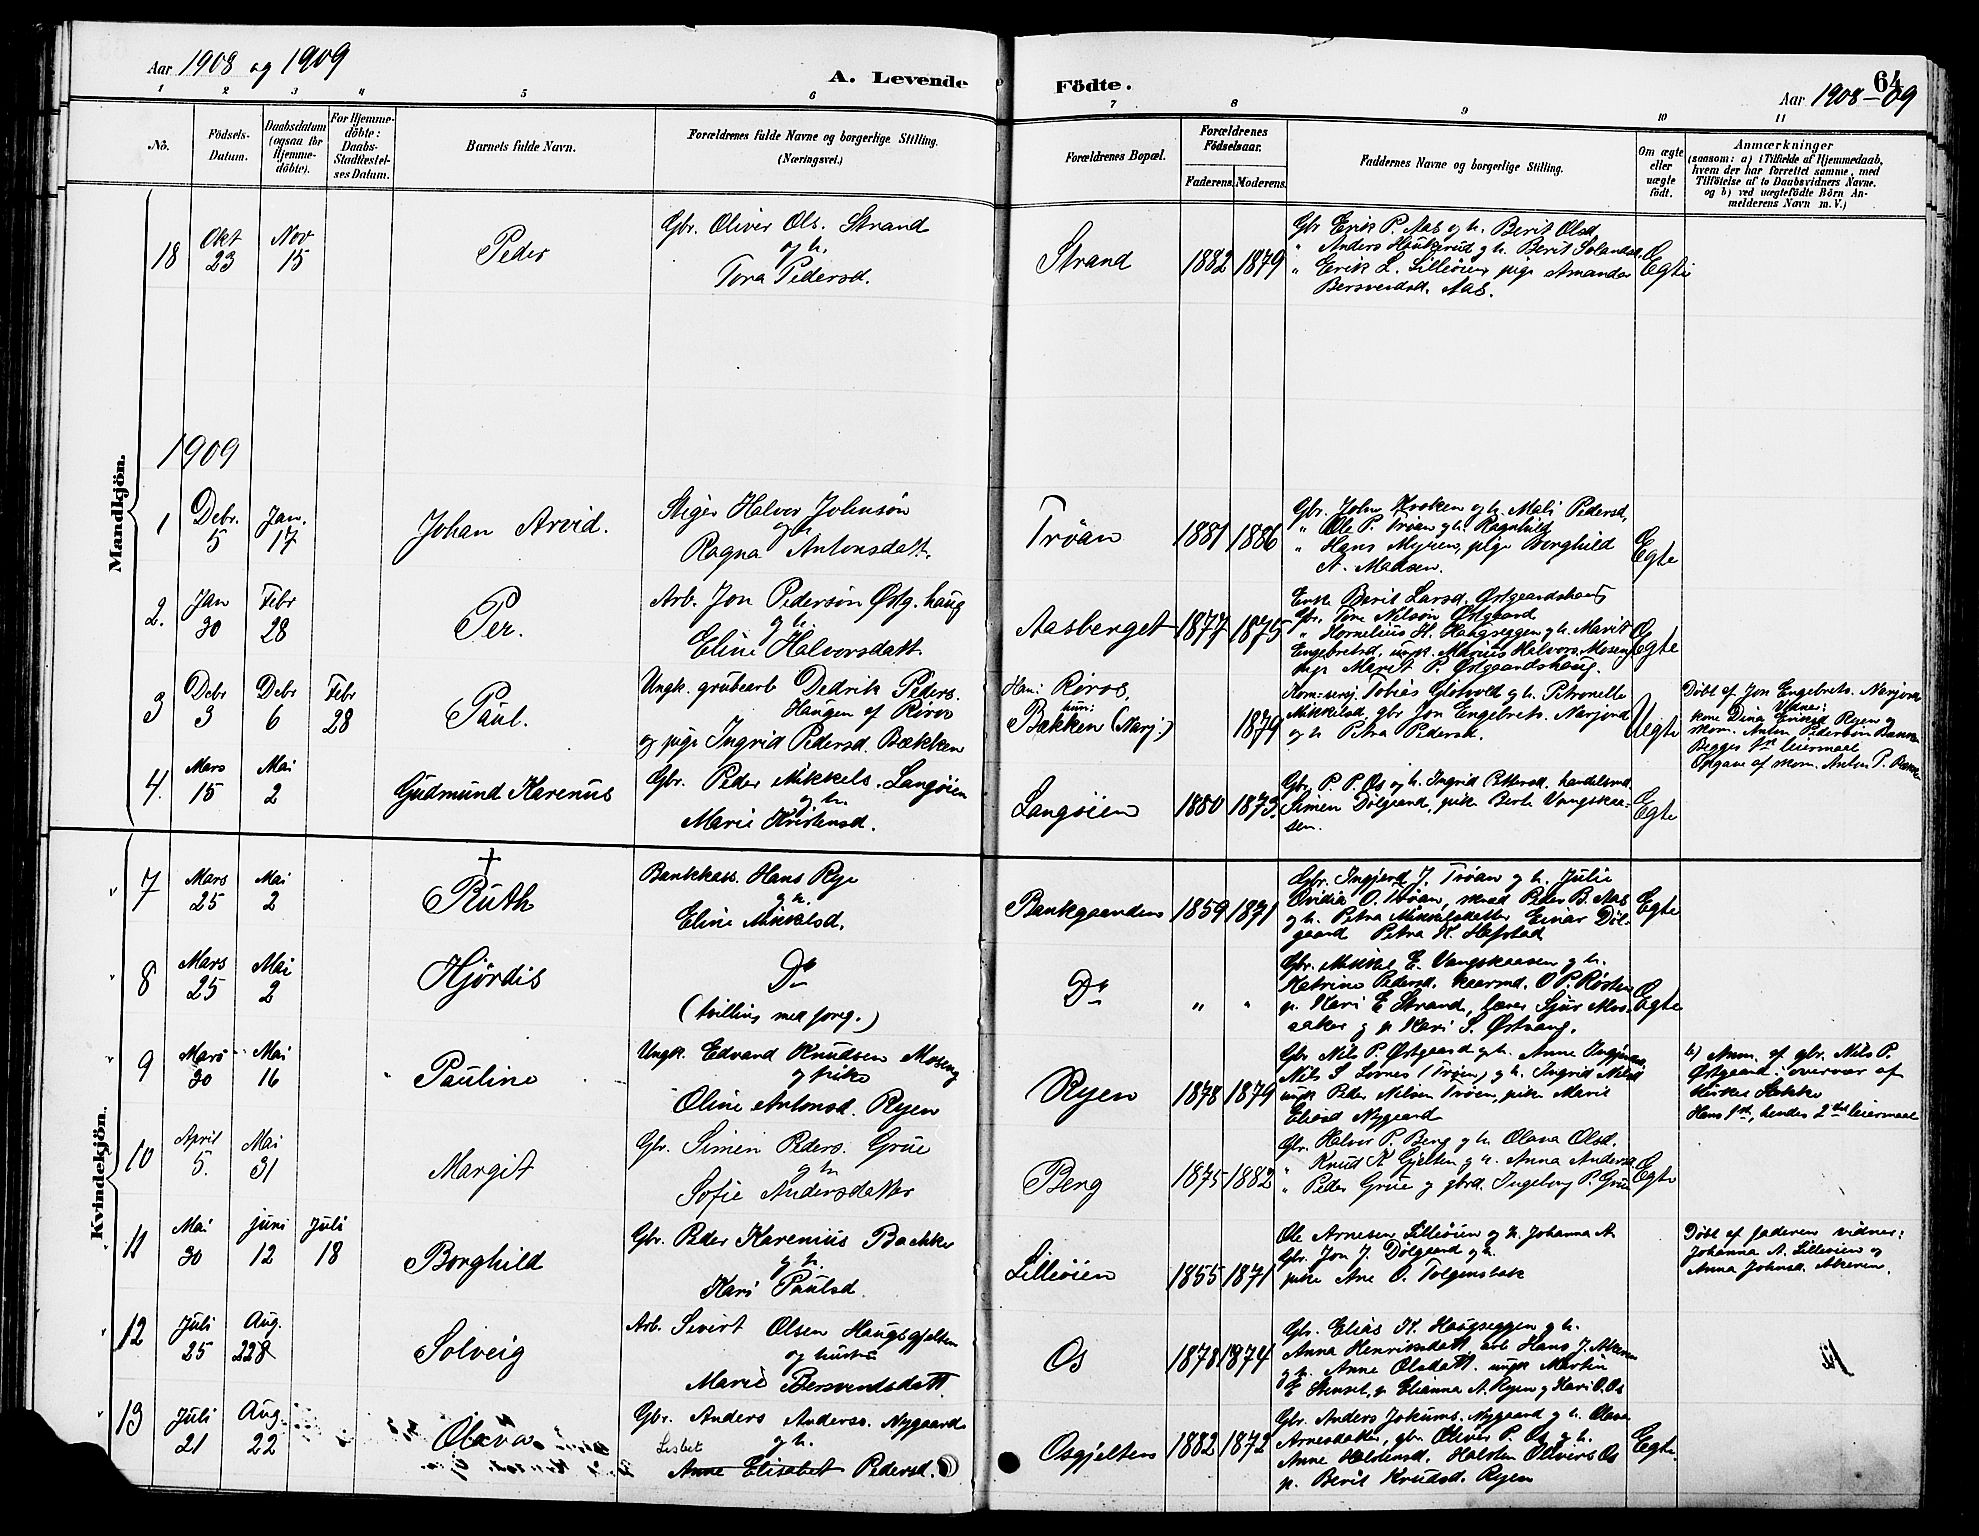 Aar 1908 og 1909
A. Levende Födte.
64
Aar 1908-09
1 2 3 4 5 6 7 8 9 10 11
No.
Födsels-
Datum.
Daabsdatum
(ogsaa for
Hjemme-
döbte).
For Hjemme-
döbte:
Daabs-
Stadfæstel-
ses Datum.
Barnets fulde Navn.
Forældrenes fulde Navne og borgerlige Stilling.
(Næringsvei.)
Forældrenes Bopæl.
Forældrenes
Födselsaar.
Faderens. Moderens.
Faddernes Navne og borgerlige Stilling.
Om ægte
eller
uægte
födt.
Anmærkninger
(saasom: a) i Tilfælde af Hjemmedaab,
hvem der har forrettet samme, med
Tilföielse af to Daabsvidners Navne.
og b) ved uægtefödte Börn An-
melderens Navn m. V.)
Mandkjön.
18
Okt
23
Nov
15
Peder
Gbr. Oliver Ols. Strand
og h.
Tora Pedersd.
Strand
1882 1879
Gbr Erik P. Aas og h. Berit Olsd.
" Anders Haukerud og h. Berit
" Erik L. Lilleöien, pige Amanda
Bersvendsd. Aas.
Egte
1909
1
Debr.
5
Jan.
17
Johan Arvid.
Stiger Halvor Johnsön
og h.
Ragna Antonsdatt.
Tröan
1881 1886
Gbr. John Kroken og h. Mali Pedersd,
" Ole P. Tröan og h. Ragnhild
" Hans Myren, pige Borghild
A. Madsen.
Egte
2.
Jan
30
Febr
28
Per.
Arb. Jon Pedersön Østg. haug
og h.
Eline Halvorsdatt.
Aasberget
1877 1875
Enke Berit Larsd. Østgaardshaug
Gbr. Tore Nilsön Østgaard
" Kornelius H. Haugseggen og h. Marit
Engebretsd. ungk. Marius Halvors. Moseng
pige Marit P. Østgaardshaug.
Egte
3
Debr
3
Debr
6
Febr
28
Paul.
Ungk. grubearb Dedrik Peders.
Haugen af Röros
og pige Ingrid Pedersd. Bækken
Han: Röros,
hun:
Bækken (Narj.)
1879
Tobias Glötvold og h. Petronelle
Mikkelsd, gbr Jon Engebrets. Narjord
og h. Petra Pedersd.
Uegte
Döbt af Jon Engebrets. Narjord
Vidne:
kone Dina Eriksd Ryen og
skom. Anton Pedersön
Begges 1ste leiermaal
Opgave af skom. Anton P.
4.
Mars
15
Mai
2
Gudmund Karenus
Gbr. Peder Mikkels. Langöien
og h.
Marie Kristensd.
Langöien
1880 1873.
Gbr. P. P. Os og h. Ingrid Pettersd. handelsmd.
Simen Dölgaard, pike Berte Vangskaa-
sen.
Egte
Kvindekjön.
7
Mars
25
Mai
2
†
Ruth
Bankkass. Hans Rye
og h.
Eline Mikkelsd.
Bankgaarden
1859 1871
Gbr. Ingjerd J. Tröan og h. Julie
Ovidia O. Tröan, Peder B. Aas
og h. Petra Mikkelsdatter Einar Döl-
gaard Petra K. Hafstad
Egte
8
Mars
25
Mai
2
Hjördis
Do
(tvilling med foreg.)
Do
" "
Gbr. Mikkel E. Vangskaasen og h.
Katrine Pedersd. O P. Rösten
p. Kari E Strand, Sjur Mos-
aaker og p. Kari S. Østvang.
Egte
9
Mars
30
Mai
16
Pauline
Ungk. Edvard Knudsen Moseng
og pike
Oline Antonsd. Ryen
Ryen
1878 1879
Gbr Nils P. Østgaard og h. Anne
Nils S Lövnes (Tröen) og h. Ingrid Nilsd
ungk Peder Nilsen Tröen, pike Marie
Eliasd Nygaard
b) Anm. af gbr. Nils P.
Østgaard i overvær af
Hans 1ste, hendes 2det leiermaal
10
April
5.
Mai
31
Margit
Gbr. Simen Peders. Grue
og h.
Sofie Andersdatter
Berg
1875 1882
Gbr. Halvor P. Berg og h. Olava Olsd.
" Knud K Gjelten og h. Anna Andersd.
" Peder Grue og gbrd. Ingeborg P. Grue
Egte
11
Mai
30
juni
12
Juli
18
Borghild
Gbr. Peder Karenius Bachke
og h.
Kari Paulsd.
Lilleöien
1855 1871
Ole Arnesen Lilleöien og h. Johanna A
Gbr. Jon J. Dölgaard og h.
pike Ane O. Tolgensbak
Döbt af faderen vidner:
Johanna A. Lilleöien og
Anna Johnsd. Akeren.
12
Juli
25
Aug.
228
Solveig
Arb. Sivert Olsen Haugsgjelten
og hustru
Marie Bersvendsdatt.
Os
1878 1874
Gbr. Elias H. Haugseggen og h.
Anna Henriksdatt. arb Hans J. Akeren
og h. Anne Olsdatt. ungk Martin
E Stensli, p. Elianna A. Ryen og Kari O. Os
13
Juli
21
Aug.
22
Olava
Gbr. Anders Anderss. Nygaard
og h.
Lisbet
Anne Elisabet Pedersd.
Osgjelten
1882 1872
Gbr. Anders Jokums. Nygaard og h. Olava
Arnesdatter, gbr. Oliver P. Os og h.
Anne Halstensd. Halsten Olivers Os
p. Berit Knudsd. Ryen
Egte.